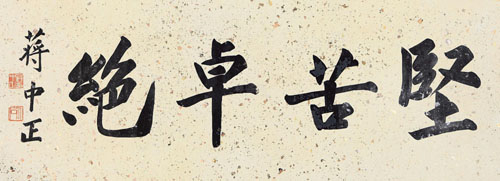 堅苦卓絶
蔣中正